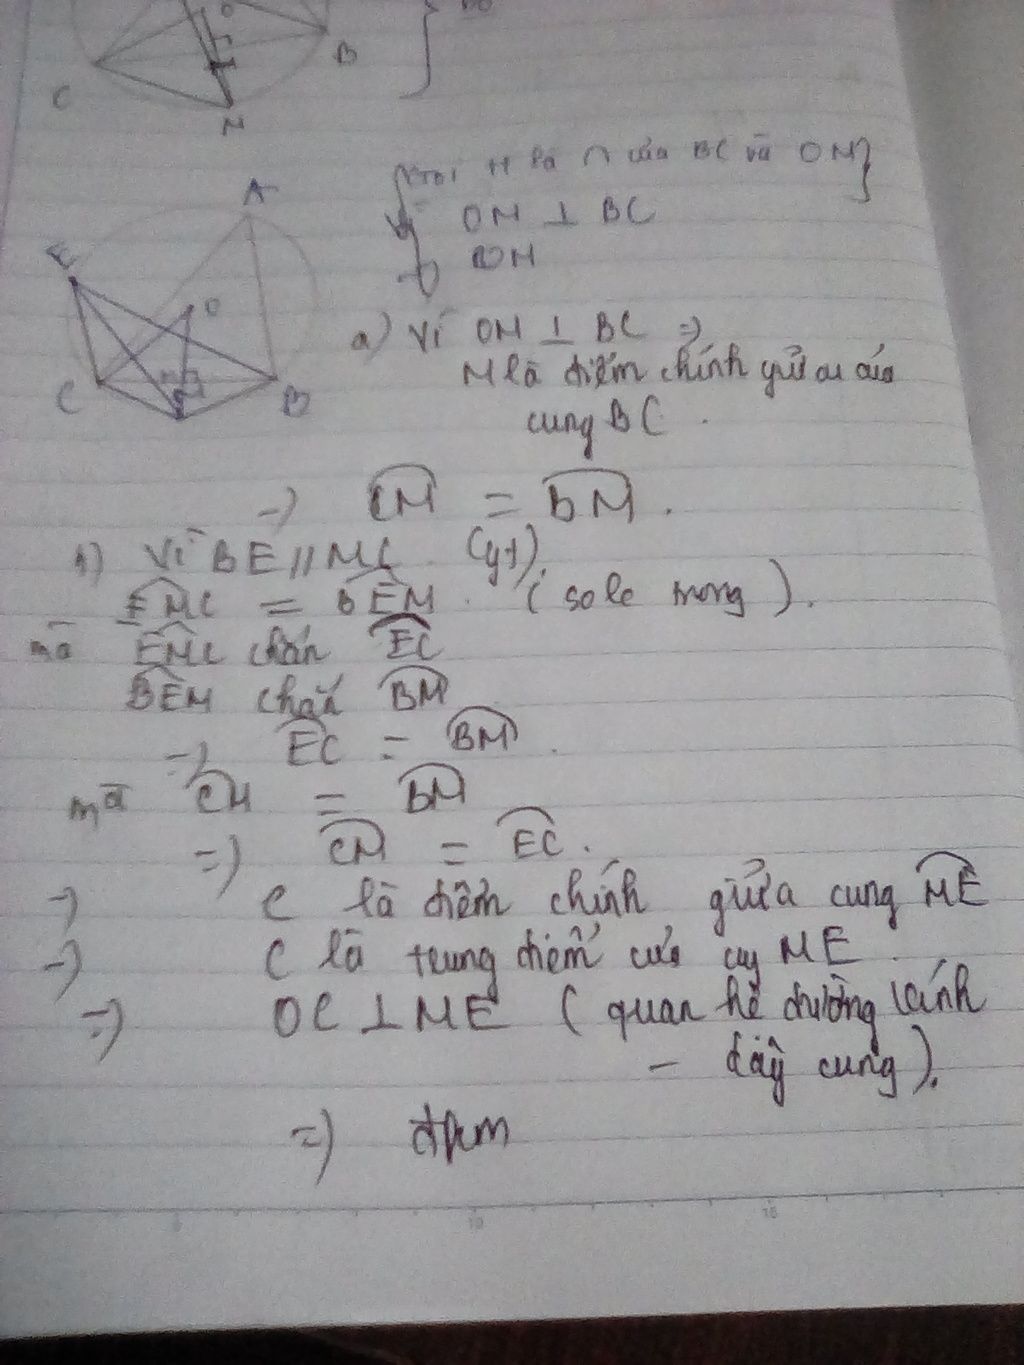 C
B
M
A
E
O
C
B
H là ∩ của BC và OM}
Vì OM ⊥ BC
a) Vì OM ⊥ BC =>
M là điểm chính giữa của
cung BC.
=> CM = BM.
b) Vì BE // MC (gt).
EMC = BEM. (so le trong).
mà EMC chắn EC
BEM chắn BM
=> EC = BM.
mà CM = BM
=> CM = EC.
=> C là điểm chính giữa cung ME
=> C là trung điểm của ME.
=> OC ⊥ ME (quan hệ đường kính
– dây cung).
=> đpcm
5 10 15